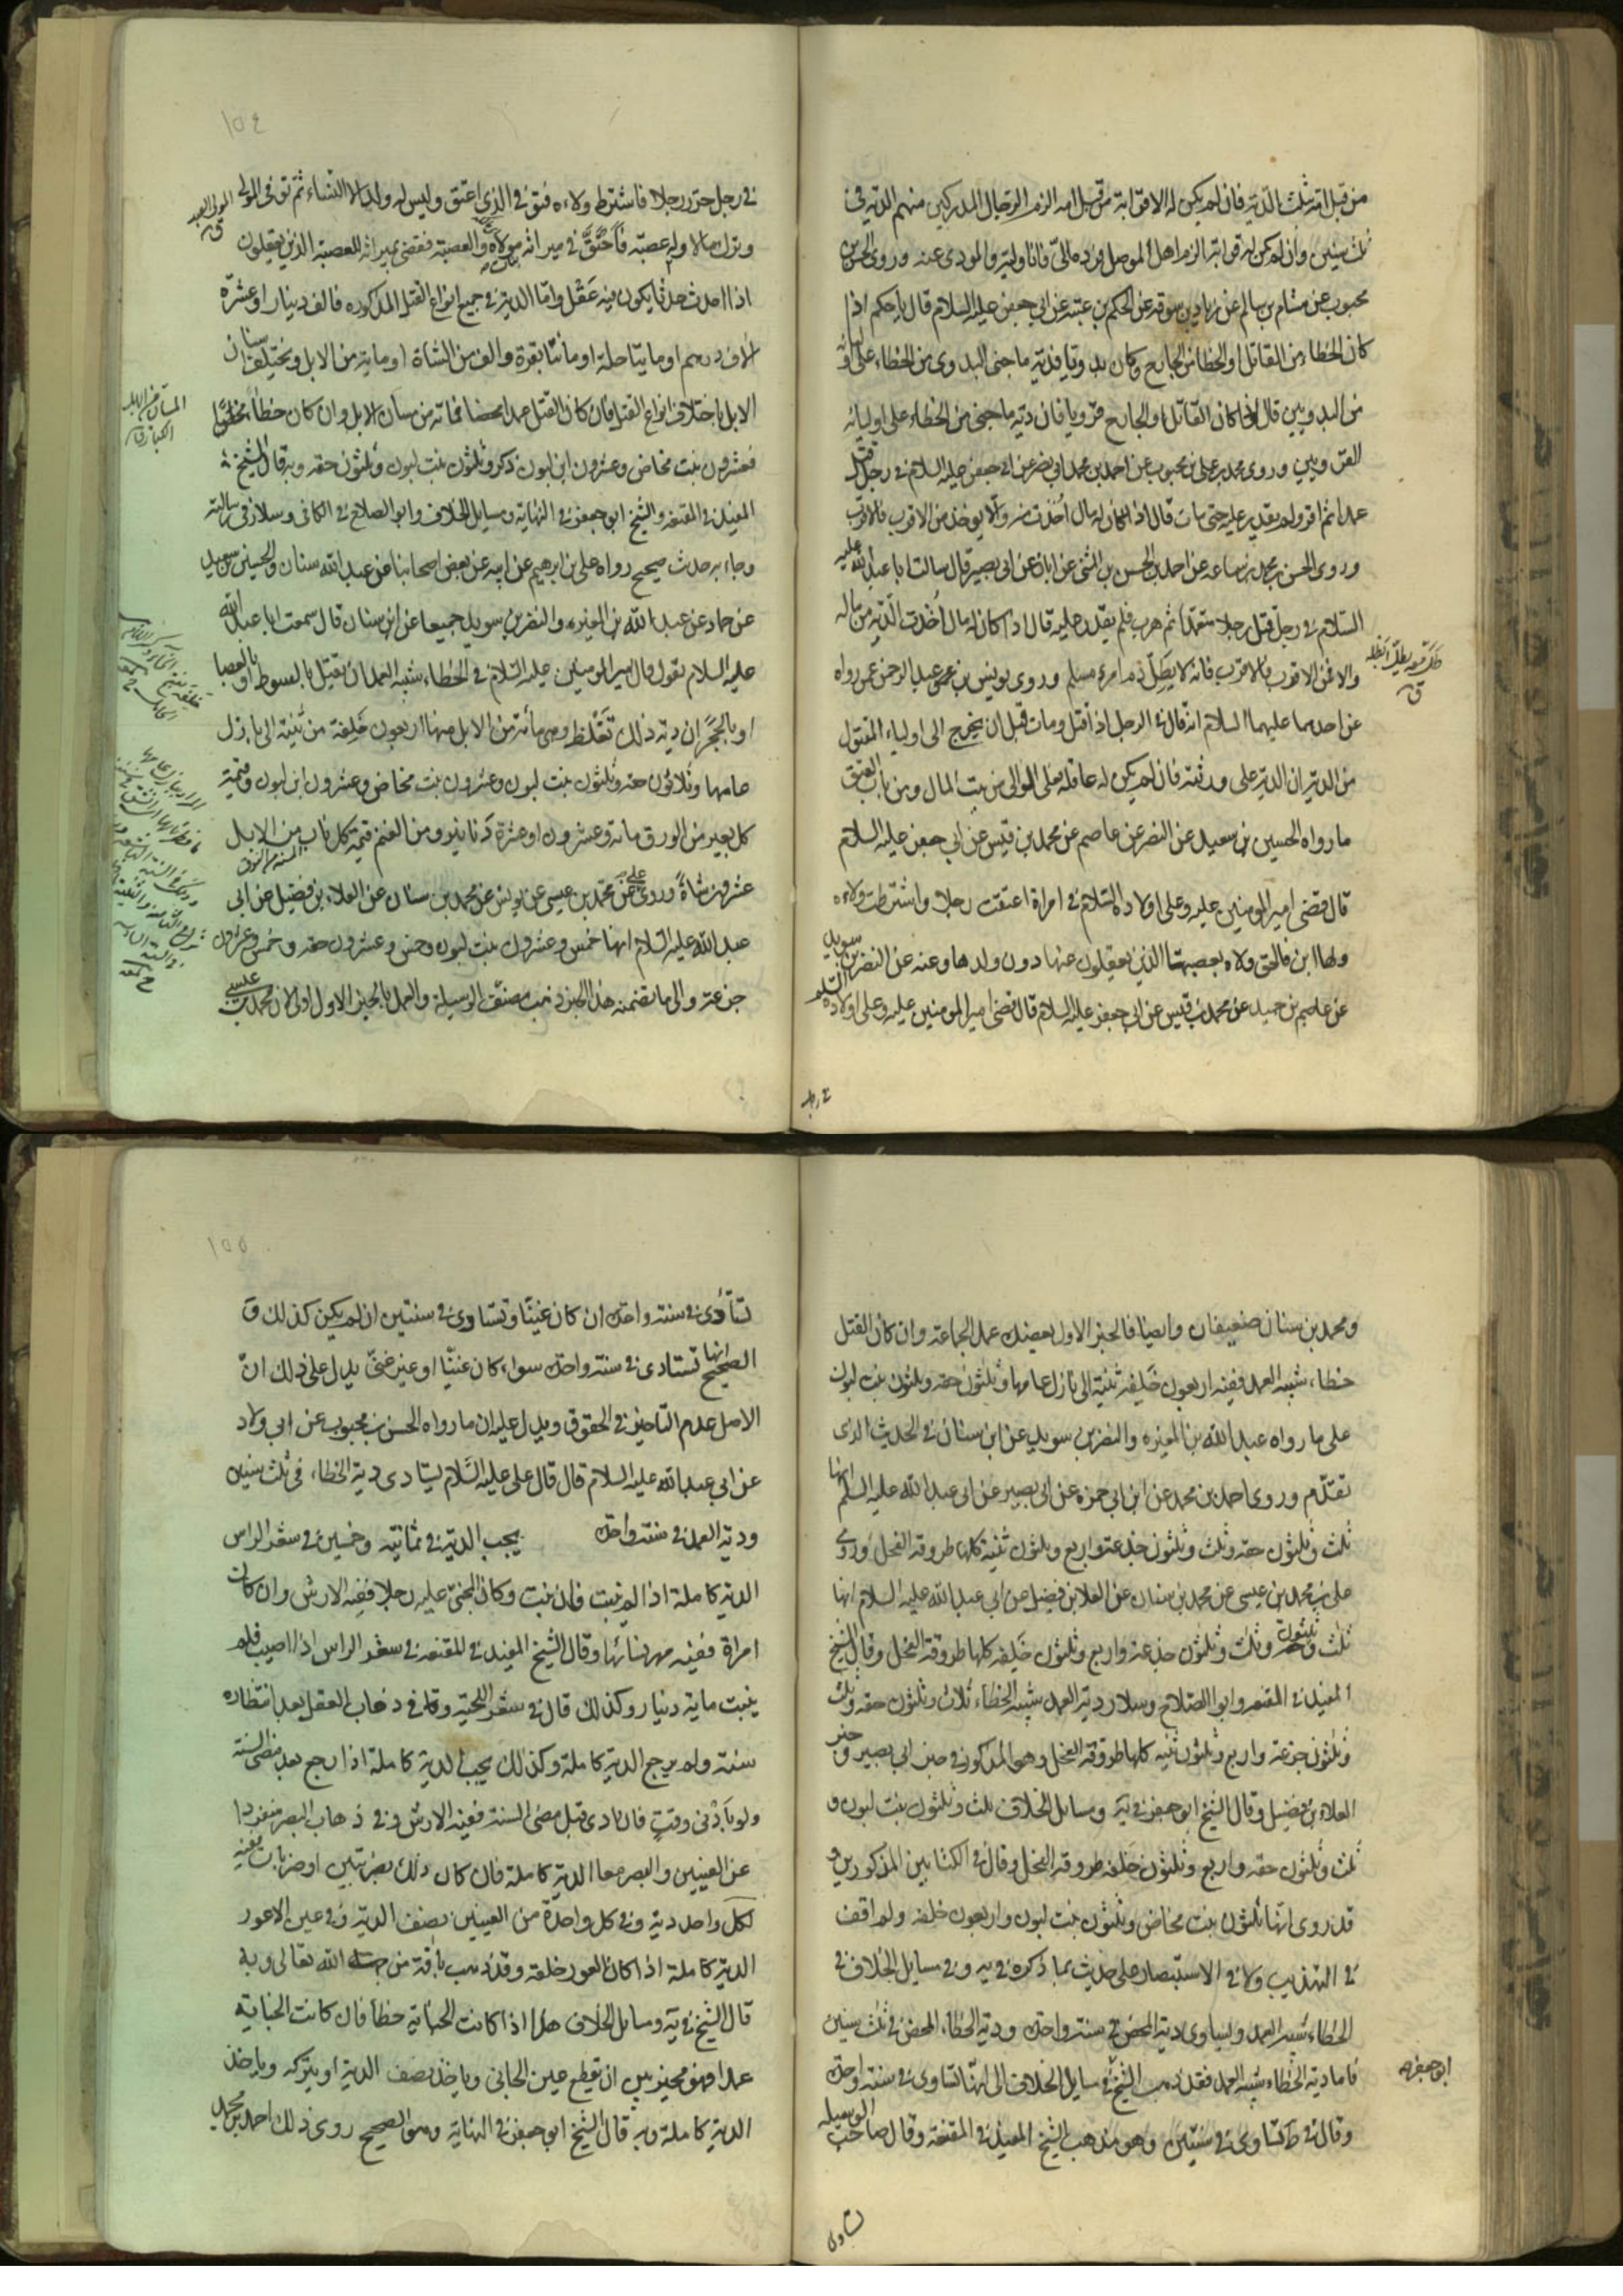 من قبل امه ثلث الدية فان لم يكن له الا قرابة من قبل امه الزم الرجال المدركين منهم الدية في
ثلث سنين وان لم يكن له قرابة الزم اهل الموصل فرده الى فانا وليه والمودى عنه وروى الحسن بن
محبوب عن هشام بن سالم عن زياد بن سوقه عن الحكم بن عتبة عن ابي جعفر عليه السلام قال يا حكم اذا
كان الخطاء من القاتل او الخطا من الجارح وكان بدويا فدية ما جنى البدوى من الخطاء على اوليائه
من البدويين قال اذا كان القاتل او الجارح قرويا فان دية ما جنى من الخطاء على اوليائه
القرويين وروى محمد بن علي بن محبوب عن احمد بن محمد ابي نصر عن ابي جعفر عليه السلام في رجل قتل
عمدا ثم فر ولم يقدر عليه حتى مات قال اذا كان له مال اخذت منه والا يوخذ من الاقرب فالاقرب
وروى الحسن بن محمد بن سماعه عن احمد بن الحسن بن المثنى عن ابان عن ابي بصير قال سالت ابا عبد الله عليه
السلام في رجل قتل رجلا متعمدا ثم هرب فلم يقدر عليه قال اذا كان له مال اخذت الدية من ماله
والا فمن الاقرب فالاقرب فانه لا يطل دم امرء مسلم وروى يونس بن عبد الرحمن عمن رواه
عن احدهما عليهما السلام انه قال في الرجل اذا قتل ومات قبل ان يخرج الى اولياء المقتول
من الدية ان الدية على ورثته فان لم يكن له عاقلة فعلى الوالي من بيت المال ومن باب العتق
ما رواه الحسين بن سعيد عن النضر عن عاصم عن محمد بن قيس عن ابي جعفر عليه السلام
قال قضى امير المومنين عليه وعلى اولاده السلام في امراة اعتقت رجلا واشترطت ولاءه
ولها ابن فالحق ولاه بعصبتها الذين يعقلون عنها دون ولدها وعنه عن النضر بن سويد
عن عاصم بن حميد عن محمد بن قيس عن ابي جعفر عليه السلام قال قضى امير المومنين عليه وعلى اولاده السلم
في رجل
١٥٤
في رجل حرر رجلا فاشترط ولاءه فتوفى الذى اعتق وليس له ولد الا النساء ثم توفى المولى
وترك مالا وله عصبة فاحتق في ميراثه بنات مولاه والعصبة فقضى بميراثه للعصبة الذين يعقلون
اذا احدث حدثا يكون فيه عقل واما الدية في جميع انواع القتل المذكوره فالف دينار او عشرة
الاف درهم او مايتا حلة او مائتا بقرة والف من الشاة او ماية من الابل ويختلف اسنان
الابل باختلاف انواع القتل فان كان القتل عمدا محضا فماته من مسان الابل وان كان خطأ محضا
فعشرون بنت مخاض وعشرون ابن لبون ذكر وثلثون بنت لبون وثلثون حقه وبه قال الشيخ
المفيد في المقنعة والشيخ ابو جعفر في النهاية ومسايل الخلاف وابو الصلاح في الكافى وسلار في رسالته
وجاء به حديث صحيح رواه علي بن ابرهيم عن ابيه عن بعض اصحابنا عن عبد الله سنان والحسين بن سعيد
عن حماد عن عبد الله بن المغيره والنضر بن سويد جميعا عن ابن سنان قال سمعت ابا عبد الله
عليه السلام يقول قال امير المومنين عليه السلام في الخطاء شبه العمد ان يقتل بالسوط او بالعصا
او بالحجر ان دية ذلك تغلظ وهي مائة من الابل منها اربعون خلفة من ثنية الى بازل
عامها وثلاثون حقه وثلثون بنت لبون وعشرون بنت مخاض وعشرون ابن لبون وقيمة
كل بعير من الورق مائة وعشرون او عشرة دنانير ومن الغنم قيمة كل ناب من الابل
عشرون شاة وروى علي عن محمد بن عيسى عن يونس عن محمد بن سنان عن العلاء بن فضيل عن ابي
عبد الله عليه السلام انها خمس وعشرون بنت لبون وخمس وعشرون حقه وخمس وعشرون
جزعة والى ما تضمنه هذا الخبر ذهب مصنف الوسيلة والعمل بالخبر الاول اولى لان محمد بن عيسى
ومحمد بن سنان ضعيفان وايضا فالخبر الاول يعضده عمل الجماعة وان كان القتل
خطاء شبيه العمد ففيه اربعون خلفه ثنية الى بازل عامها وثلثون حقه وثلثون بنت لبون
على ما رواه عبد الله بن المغيره والنضر بن سويد عن ابن سنان في الحديث الذى
تقدم وروى احمد بن محمد عن ابن ابي حمزه عن ابي بصير عن ابي عبد الله عليه السلم انها
ثلث وثلثون حقه وثلث وثلثون جذعة واربع وثلثون ثنية كلها طروقة الفحل وروى
علي بن محمد بن عيسى عن محمد بن سنان عن العلا بن فضيل عن ابي عبد الله عليه السلام انها
ثلث وثلثون حقه وثلث وثلثون جذعة واربع وثلثون خلفه كلها طروقة الفحل وقال الشيخ
المفيد في المقنعه وابو الصلاح وسلار دية العمد شبيه الخطاء ثلاث وثلثون حقه وثلث
وثلثون جزعة واربع وثلثون ثنيه كلها طروقة الفحل وهو المذكور في خبر ابي بصير وخبر
العلاء بن فضيل وقال الشيخ ابو جعفر في ية ومسايل الخلاف ثلث وثلثون بنت لبون و
ثلث وثلثون حقه واربع وثلثون خلفه طروقة الفحل وقال في الكتابين المذكورين و
قد روى انها ثلثون بنت مخاض وثلثون بنت لبون واربعون خلفه ولم اقف
في التهذيب ولا في الاستبصار على حديث بما ذكره في يه وفي مسايل الخلاف في
الخطاء شبيه العمد ويستاوى دية المحض في سنة واحدة ودية الخطاء المحض في ثلث سنين
فاما دية الخطاء شبيه العمد فقد ذهب الشيخ في مسايل الخلاف الى انها تستاوى في سنة واحدة
ابو جعفر
وقال في ط تستاوى في سنتين وهو مذهب الشيخ المفيد في المقنعة وقال صاحب الوسيله
تستاوى
١٥٥
تستأدى في سنة واحدة ان كان غنيا وتستاوى في سنتين ان لم يكن كذلك و
الصحيح انها تستادى في سنة واحدة سواء كان غنيا او غير غنى يدل على ذلك ان
الاصل عدم التاخير في الحقوق ويدل عليه ان ما رواه الحسن بن محبوب عن ابي ولاد
عن ابي عبد الله عليه السلام قال قال على عليه السلام يستادى دية الخطاء في ثلث سنين
ودية العمد في سنة واحدة يجب الدية في ثمانية وخمسين في شعر الراس
الدية كاملة اذا لم ينبت فان نبت وكان المجنى عليه رجلا ففيه الارش وان كانت
امراة ففيه مهر نسائها وقال الشيخ المفيد في المقنعه في شعر الراس اذا اصيب فلم
ينبت ماية دينار وكذلك قال في شعر اللحية وقال في ذهاب العقل بعد انتظاره
سنة ولم يرجع الدية كاملة وكذلك يجب الدية كاملة اذا رجع بعد مضى السنة
ولو بأدنى وقت فان عادى قبل مضى السنة ففيه الارش وفي ذهاب البصر منفردا
عن العينين والبصر معا الدية كاملة فان كان ذلك بضربتين او ضربات ففيه
لكل واحد دية وفي كل واحدة من العينين نصف الدية وفي عين الاعور
الدية كاملة اذا كان العور خلقة وقد ذهب بافة من جهة الله تعالى وبه
قال الشيخ في ية ومسايل الخلاف هذا اذا كانت الجناية خطأ فان كانت الجناية
عمدا فهو مخير بين ان يقطع عين الجانى وياخذ نصف الدية او يتركه وياخذ
الدية كاملة وبه قال الشيخ ابو جعفر في النهاية وهو الصحيح روى ذلك احمد بن محمد